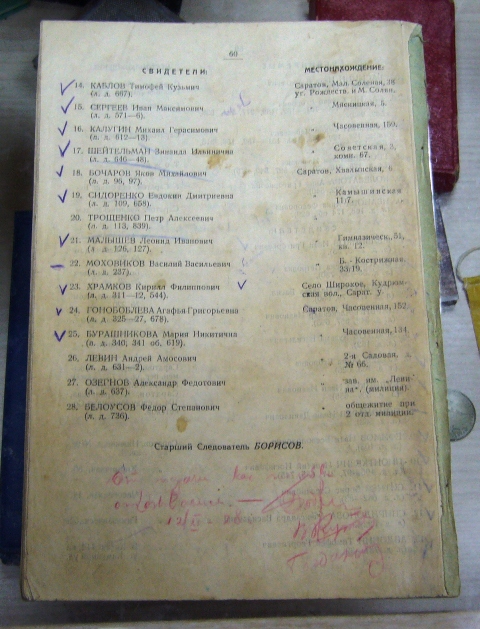 60
СВИДЕТЕЛИ: МЕСТОНАХОЖДЕНИЕ:
14. КАБЛОВ Тимофей Кузьмич Саратов, Мал. Соленая, 38
(л. д. 667). уг. Рождеств. и М. Солян.
15. СЕРГЕЕВ Иван Максимович „ Мясницкая, 5.
(л. д. 571—6).
16. КАЛУГИН Михаил Герасимович „ Часовенная, 150.
(л. д. 612—13).
17. ШЕЙТЕЛЬМАН Зинаида Ильинична „ Советская, 3,
(л. д. 646—48). комн. 67.
18. БОЧАРОВ Яков Михайлович Саратов, Хвалынская, 6
(л. д. 96, 97).
19. СИДОРЕНКО Евдокия Дмитриевна „ Камышинская
(л. д. 109, 658). 117.
20. ТРОШЕНКО Петр Алексеевич „
(л. д. 113, 839).
21. МАЛЫШЕВ Леонид Иванович „ Гимназическ., 51,
(л. д. 126, 127). кв. 12.
22. МОХОВИКОВ Василий Васильевич „ Б.-Кострижная,
(л. д. 237). 33/19.
23. ХРАМКОВ Кирилл Филиппович Село Широкое,
(л. д. 311—12, 544). вол., Сарат. у.
24. ГОНОБОБЛЕВА Агафья Григорьевна Саратов, Часовенная, 152.
(л. д. 325—27, 678).
25. БУРАШНИКОВА Мария Никитична „ Часовенная, 134.
(л. д. 340, 341 об, 619).
26. ЛЕВИН Андрей Амосович „ 2-я Садовая, д.
(л. д. 631—2). № 66.
27. ОЗЕРНОВ Александр Федотович „ зав. им. „Лени-
(л. д. 637). на". (милиция).
28. БЕЛОУСОВ Федор Степанович „ общежитие при
(л. д. 736). 2 отд. милиции.
Старший Следователь БОРИСОВ.